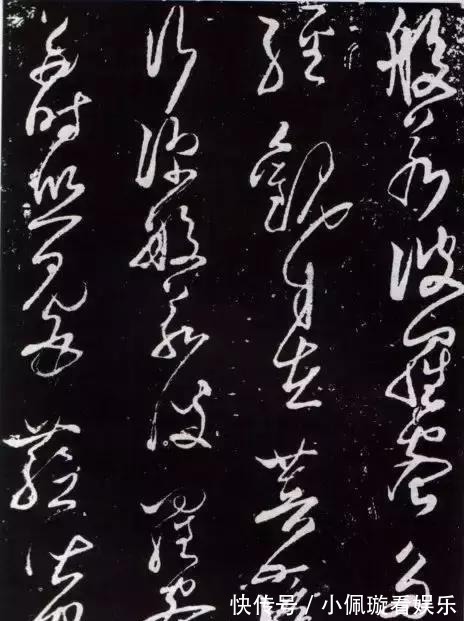 般若波羅蜜多
經觀自在菩薩
行深般若波羅蜜
多時照見五蘊皆
快传号/小佩璇看娱乐